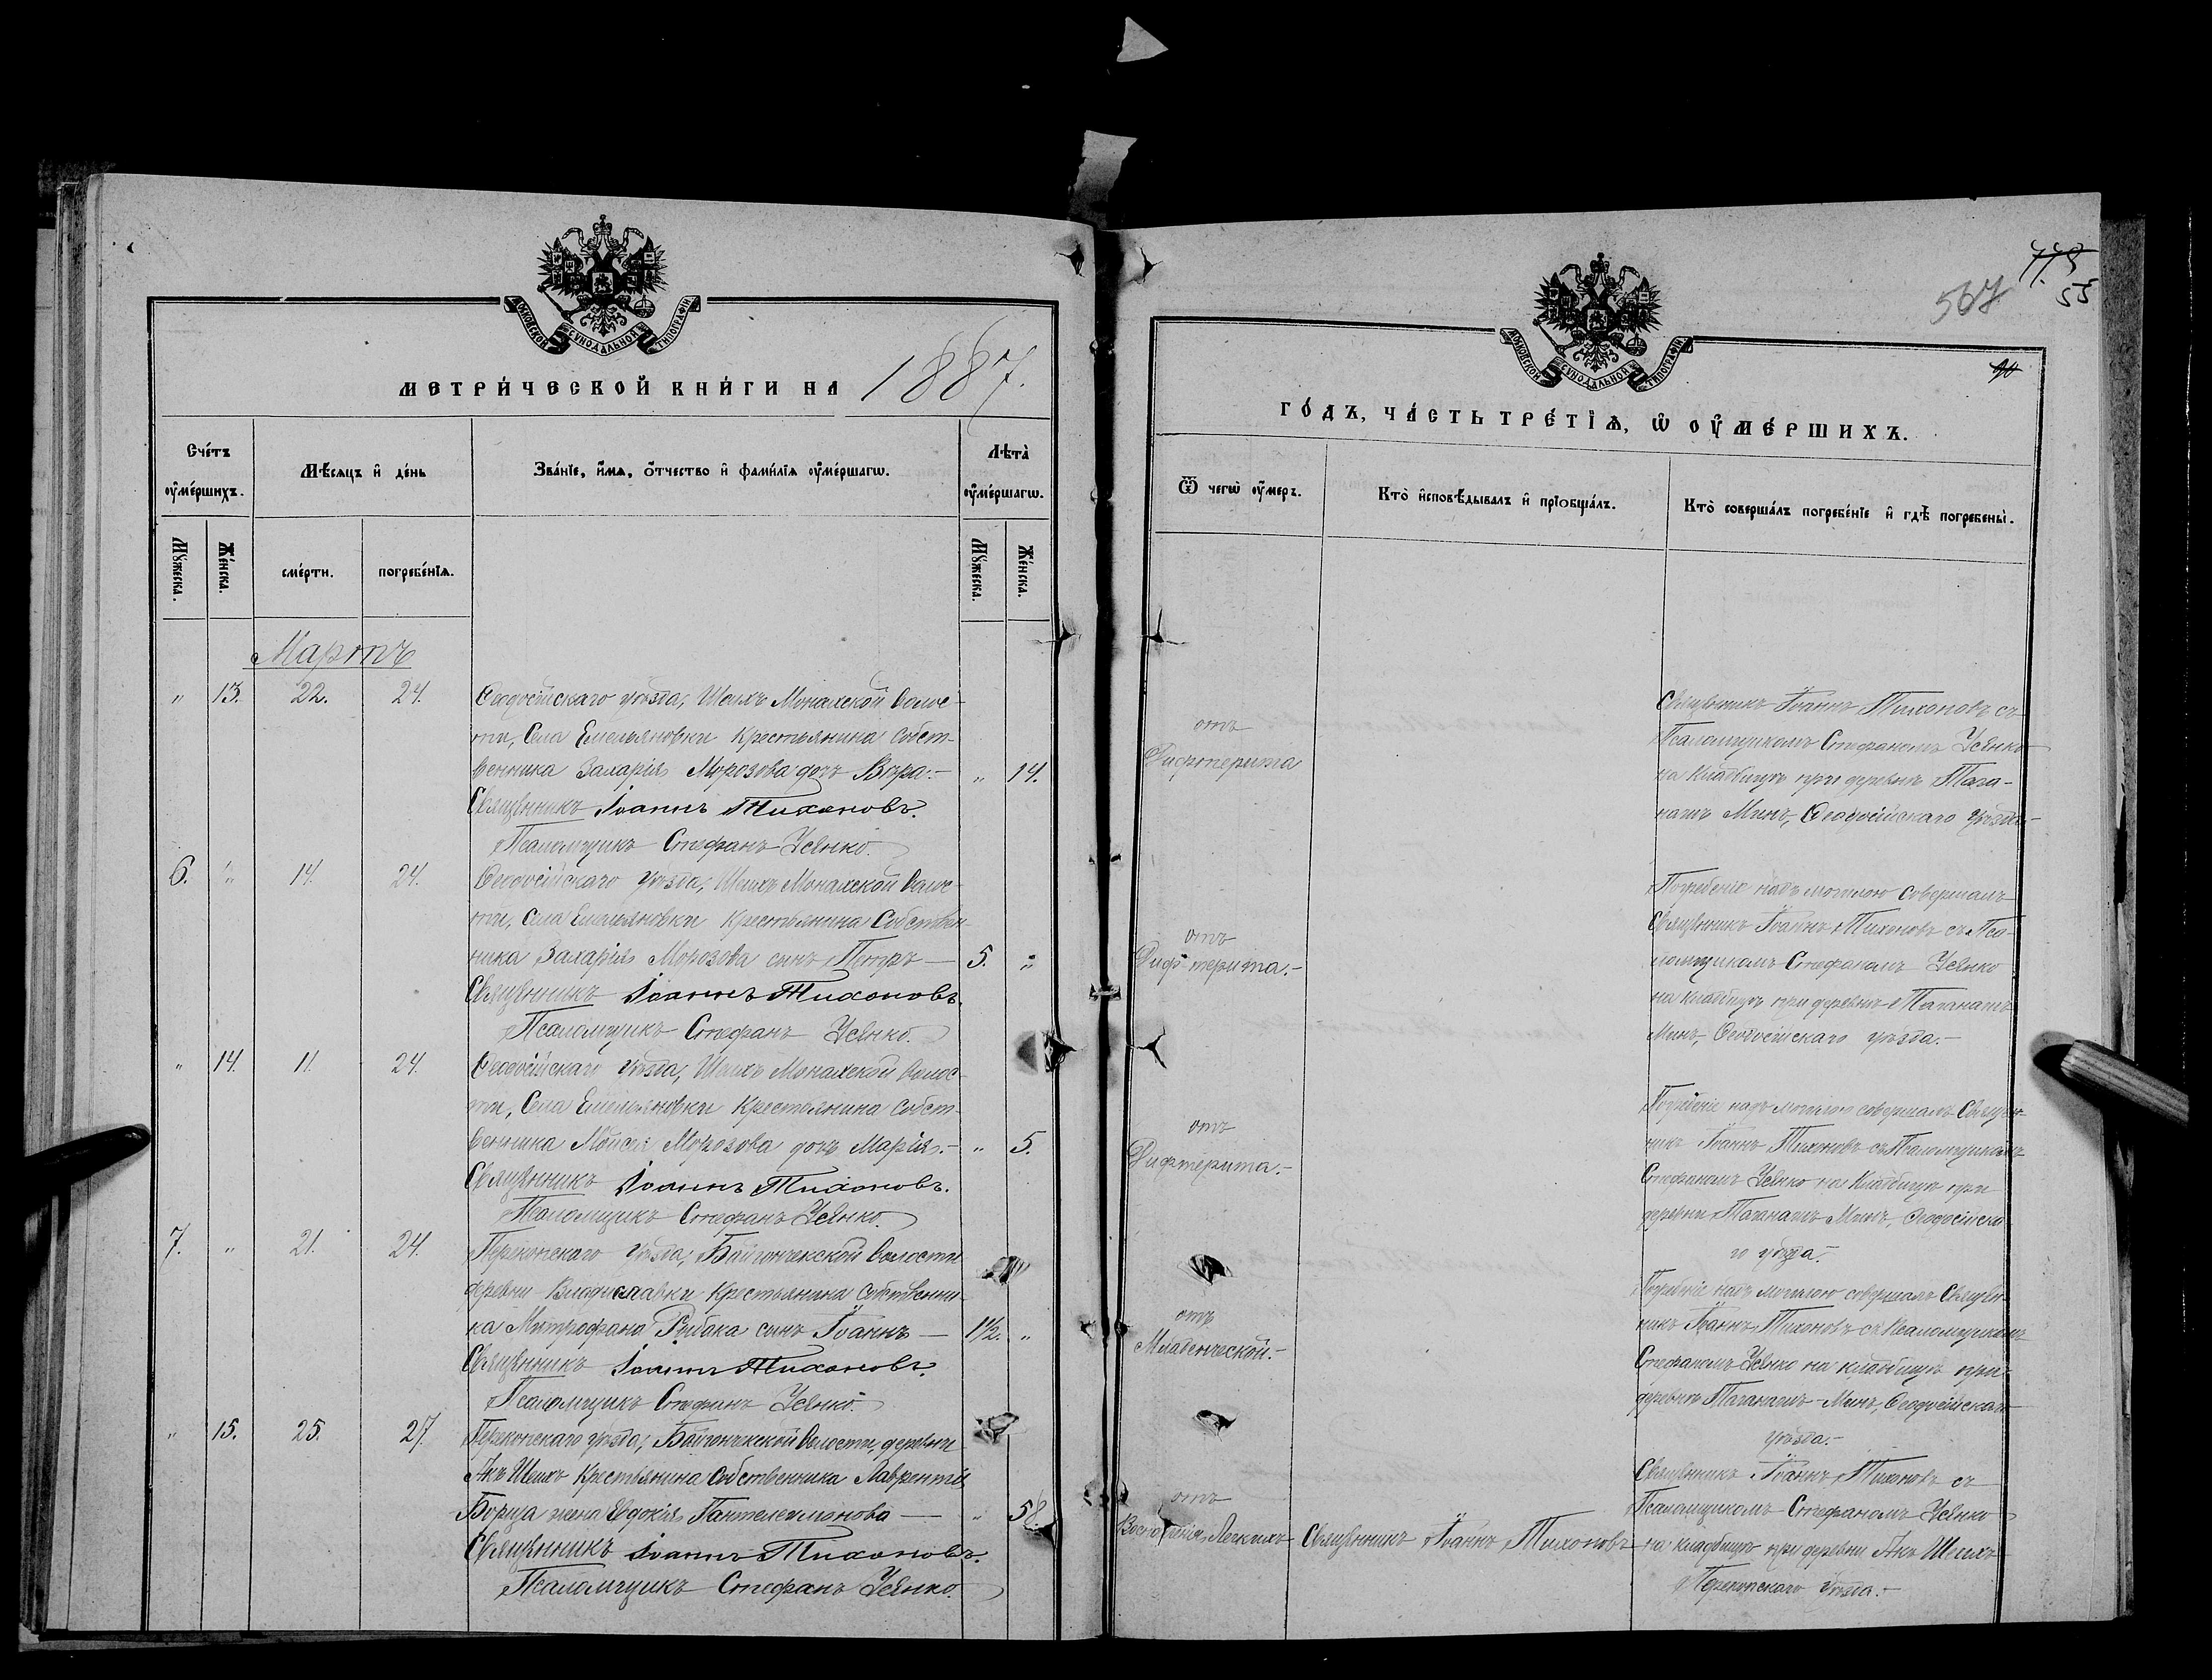 МОСКОВСКОЙ СѴНОДАЛЬНОЙ ТИПОГРАФІИ
МЕТРИ́ЧЕСКОЙ КНИ́ГИ НА 1887.
Сче́тъ ᲂу҆ме́ршихъ.
Мѣ́сяцъ и҆ де́нь
Зва́нїе, и҆́мѧ, ѻ҆́тчество и҆ фами́лїѧ ᲂу҆ме́ршагѡ.
Лѣ́та ᲂу҆ме́ршагѡ.
Мꙋ́жеска.
Же́нска.
сме́рти.
погребе́нїѧ.
Мꙋ́жеска.
Же́нска.
Мартъ
" 13. 22. 24. Ѳеодосійскаго уѣзда, Шеихъ Монахской волос-
ти, Села Емельяновки Крестьянина Собст-
венника Захарія Морозова дочь Вѣра.- " 14.
Священникъ Іоаннъ Тихоновъ.
Псаломщикъ Стефанъ Усенко.
6. " 14. 24. Ѳеодосійскаго уѣзда, Шеихъ Монахской волос-
ти, Села Емельяновки Крестьянина Собствен-
ника Захарія Морозова сынъ Петръ — 5. "
Священникъ Іоаннъ Тихоновъ.
Псаломщикъ Стефанъ Усенко.
" 14. 11. 24. Ѳеодосійскаго уѣзда, Шеихъ Монахской волос-
ти, Села Емельяновки Крестьянина Собст-
венника Моисея Морозова дочь Марія.- " 5.
Священникъ Іоаннъ Тихоновъ.
Псаломщикъ Стефанъ Усенко.
7. " 21. 24. Перекопскаго уѣзда, Байгончекской волости
деревни Владиславки Крестьянина Собственни-
ка Митрофана Рыбака сынъ Іоаннъ — 1½. "
Священникъ Іоаннъ Тихоновъ.
Псаломщикъ Стефанъ Усенко.
" 15. 25. 27. Перекопскаго уѣзда, Байгончекской волости, деревни
Акъ Шеихъ Крестьянина Собственника Лаврентія
Борца жена Евдокія Пантелеимонова — " 58.
Священникъ Іоаннъ Тихоновъ.
Псаломщикъ Стефанъ Усенко.
567
55
МОСКОВСКОЙ СѴНОДАЛЬНОЙ ТИПОГРАФІИ
ГО́ДЪ, ЧА́СТЬ ТРЕ́ТЇѦ, Ѡ҆ ОУ҆МЕ́РШИХЪ.
Ѿ чегѡ̀ ᲂу҆́меръ.
Кто̀ и҆сповѣ́дывалъ и҆ прїѻбща́лъ.
Кто̀ соверша́лъ погребе́нїе и҆ гдѣ̀ погребены̀.
отъ
Дифтерита
Священникъ Іоаннъ Тихоновъ съ
Псаломщикомъ Стефаномъ Усенко
на Кладбищѣ при деревнѣ Тага-
нашъ Минъ, Ѳеодосійскаго уѣзда.-
отъ
Дифтерита.-
Погребеніе надъ могилою совершалъ
Священникъ Іоаннъ Тихоновъ съ Пса-
ломщикомъ Стефаномъ Усенко
на кладбищѣ при деревнѣ Таганашъ
Минъ, Ѳеодосійскаго уѣзда.-
отъ
Дифтерита.-
Погребеніе надъ могилою совершалъ Священ-
никъ Іоаннъ Тихоновъ съ Псаломщикомъ
Стефаномъ Усенко на Кладбищѣ при
деревни Таганашъ Минъ, Ѳеодосійска-
го уѣзда.-
отъ
Младенческой.-
Погребеніе надъ могилою совершалъ Священ-
никъ Іоаннъ Тихоновъ съ Псаломщикомъ
Стефаномъ Усенко на кладбищѣ при
деревнѣ Таганашъ-Минъ, Ѳеодосійскаго
уѣзда.-
отъ
Воспаленія Легкихъ
Священникъ Іоаннъ Тихоновъ
Священникъ Іоаннъ Тихоновъ съ
Псаломщикомъ Стефаномъ Усенко
на кладбищѣ при деревни Акъ Шеихъ
Перекопскаго уѣзда.-